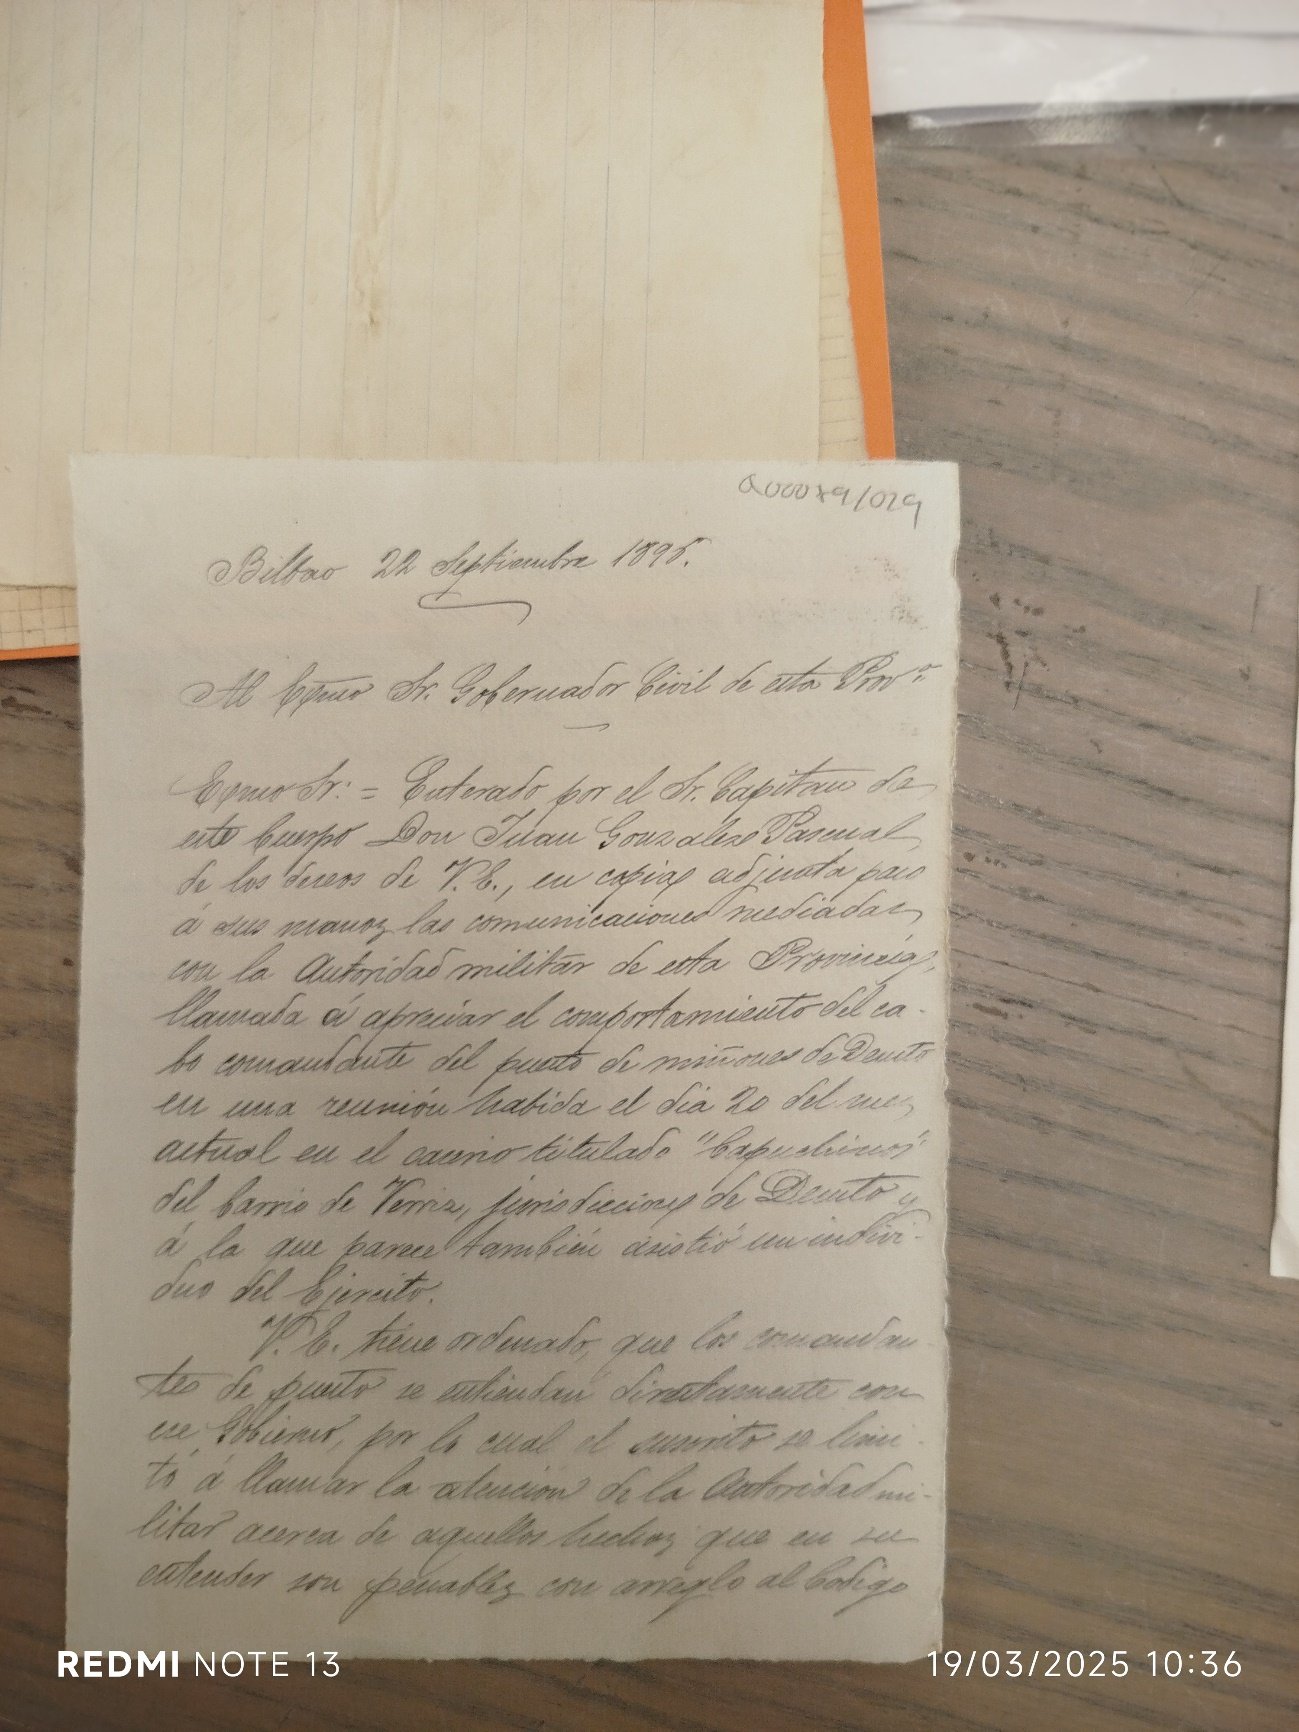 Q00089/029
Bilbao 22 Septiembre 1895.
Al Exmo Sr. Gobernador Civil de esta Prov.ª
Exmo Sr: = Enterado por el Sr. Capitan de
este Cuerpo Don Juan Gonzalez Pascual
de los deseos de V.E., en copia adjunta paso
á sus manos las comunicaciones mediadas
con la Autoridad militar de esta Provincia,
llamada á apreciar el comportamiento del ca-
bo comandante del puesto de miñones de Deusto
en una reunión habida el dia 20 del mes
actual en el casino titulado "Capuchinos"
del barrio de Verriz, jurisdiccion de Deusto y
á la que parece también asistió un indivi-
duo del Ejercito.
V.E. tiene ordenado, que los comandan-
tes de puesto se entiendan directamente con
ese Gobierno, por lo cual el suscrito se limi-
tó á llamar la atención de la Autoridad mi-
litar acerca de aquellos hechos que en su
entender son penables con arreglo al Codigo
REDMI NOTE 13
19/03/2025 10:36